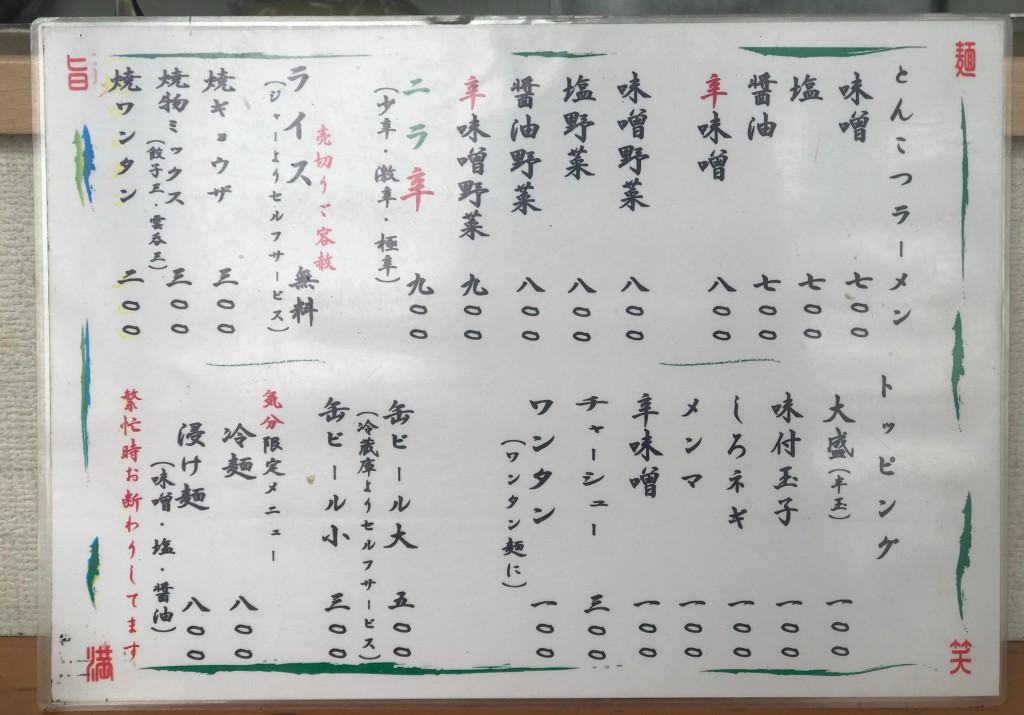 麺
とんこつラーメン
味噌 七〇〇
塩 七〇〇
醤油 七〇〇
辛味噌 八〇〇
味噌野菜 八〇〇
塩野菜 八〇〇
醤油野菜 八〇〇
辛味噌野菜 九〇〇
ニラ辛 九〇〇
(少辛・激辛・極辛)
売切りご容赦
ライス 無料
(ジャーよりセルフサービス)
焼ギョウザ 三〇〇
焼物ミックス 三〇〇
(餃子三・雲呑三)
焼ワンタン 二〇〇
旨
トッピング
大盛(半玉) 一〇〇
味付玉子 一〇〇
しろネギ 一〇〇
メンマ 一〇〇
辛味噌 一〇〇
チャーシュー 三〇〇
ワンタン 一〇〇
(ワンタン麺に)
缶ビール大 五〇〇
(冷蔵庫よりセルフサービス)
缶ビール小 三〇〇
気分限定メニュー
冷麺 八〇〇
浸け麺 八〇〇
(味噌・塩・醤油)
繁忙時お断わりしてます
笑
満